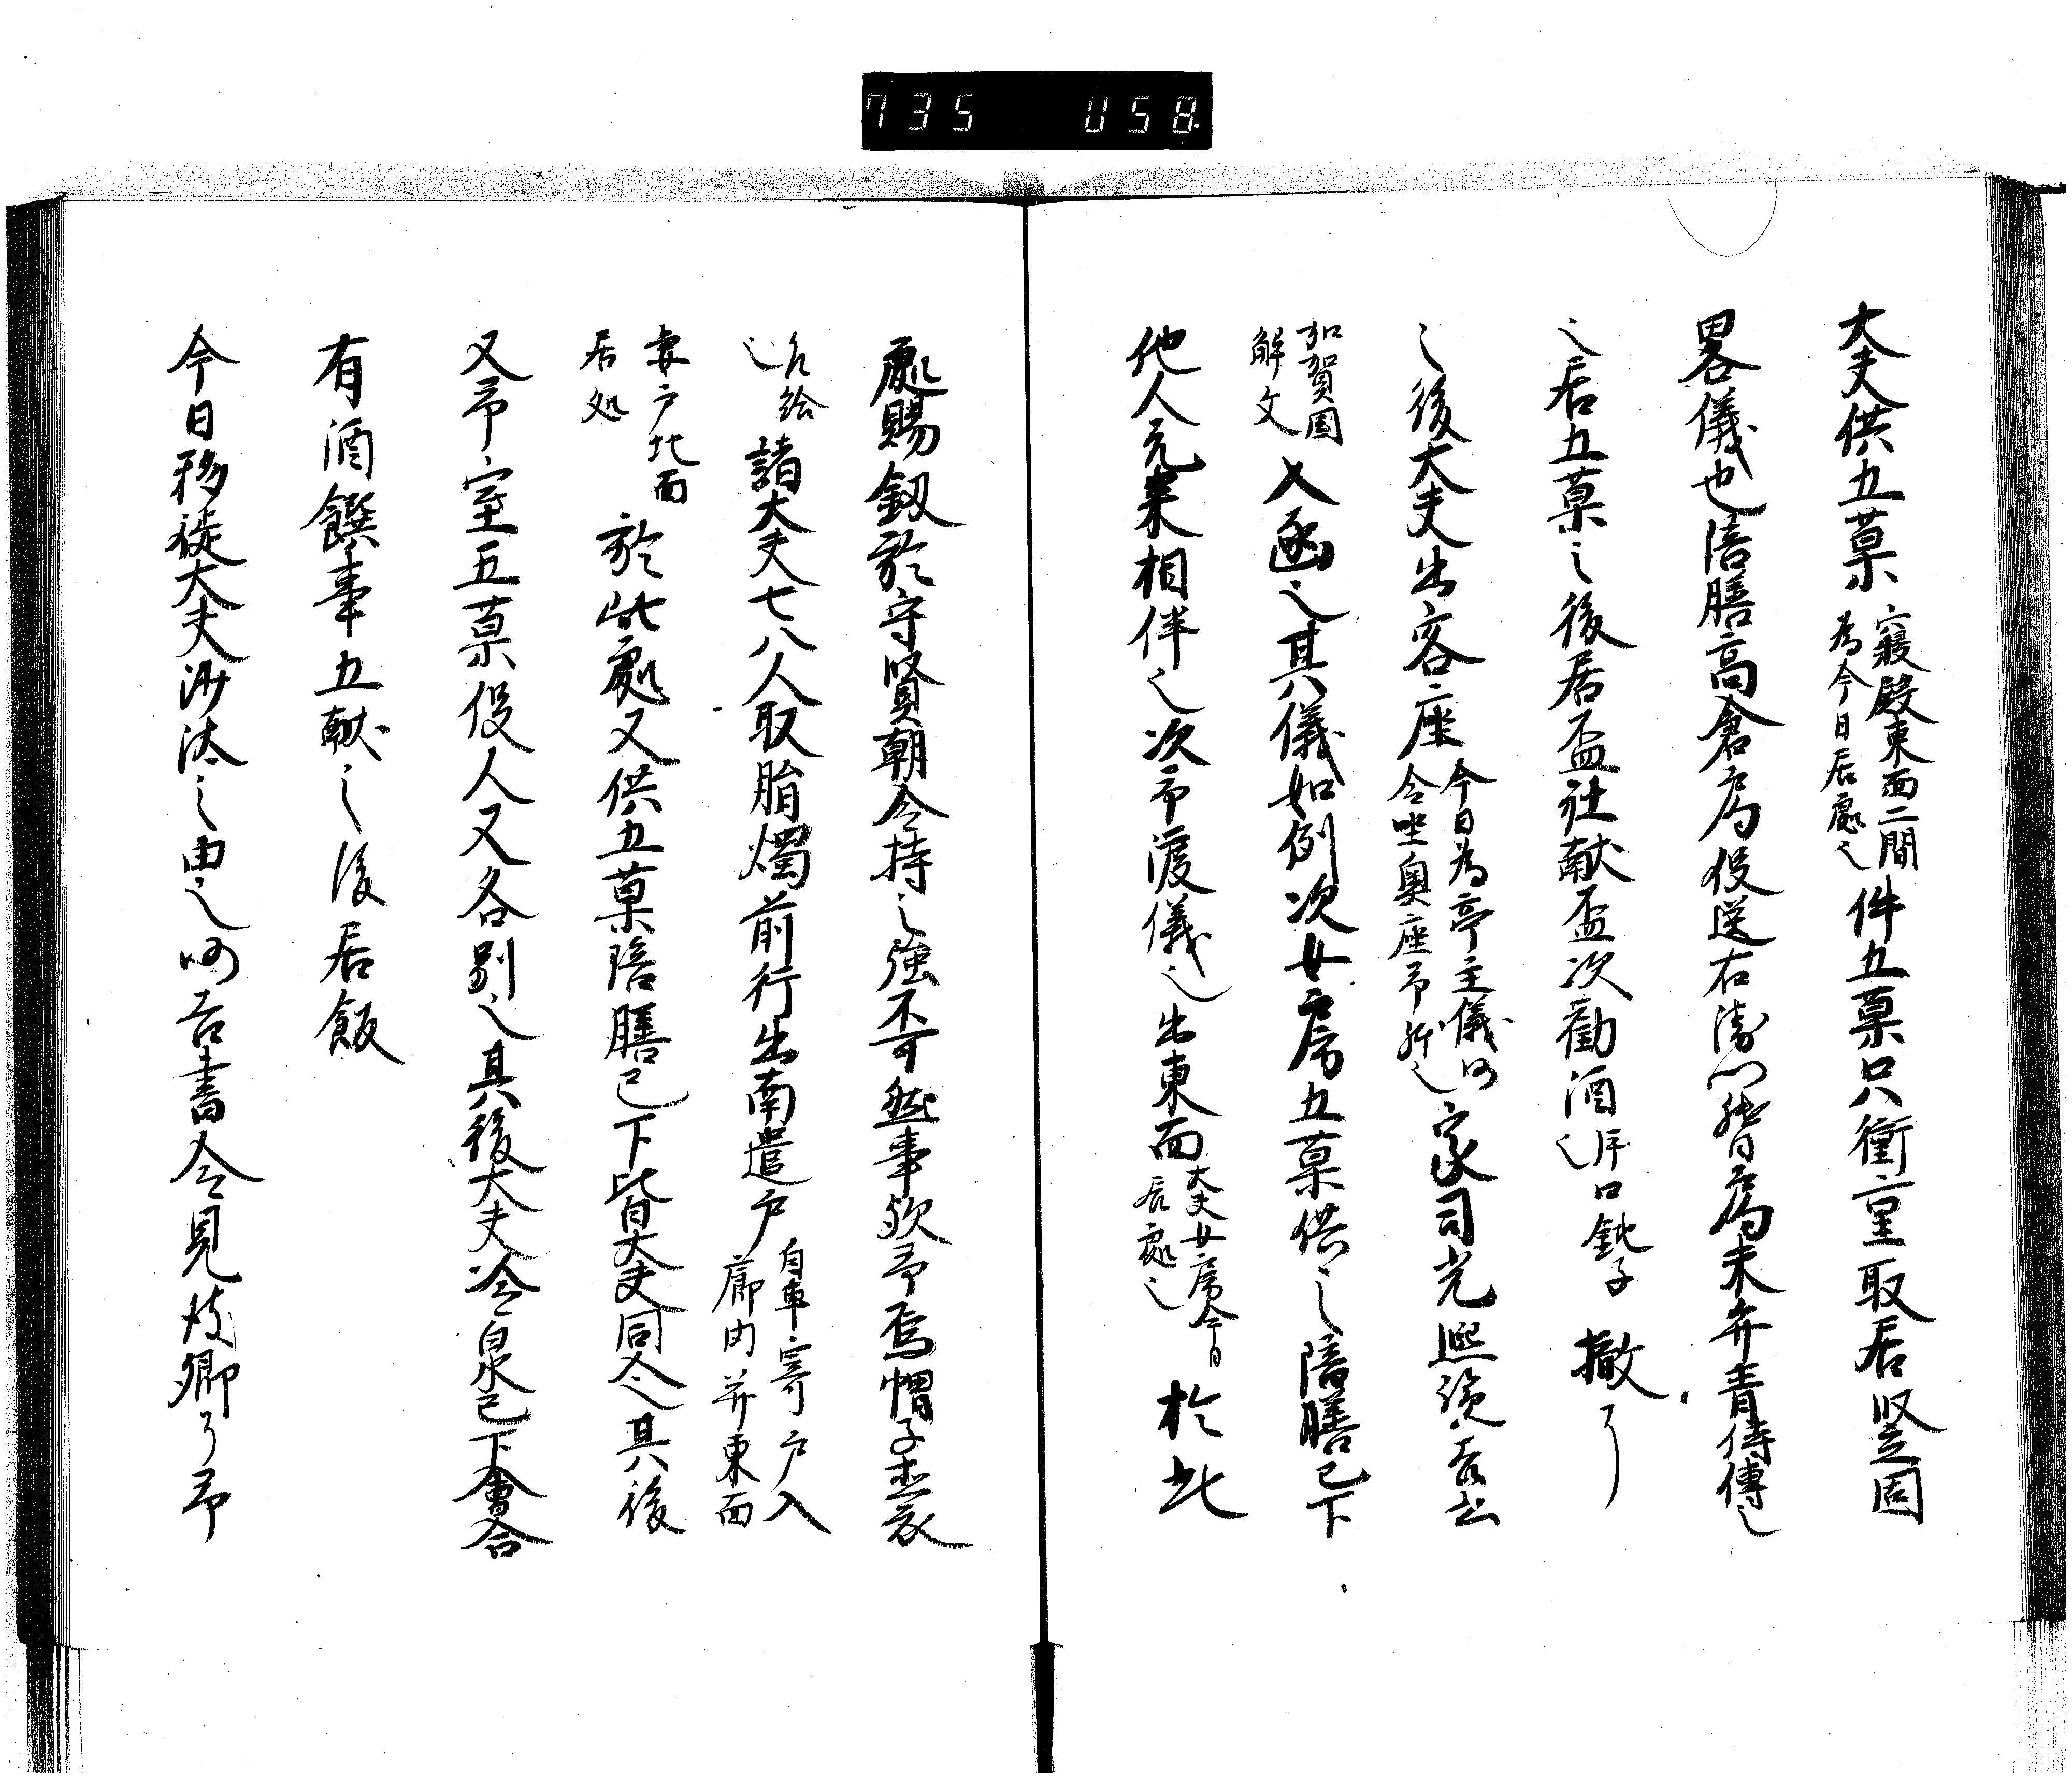 735 058
大夫供五菓 寝殿東面二間
為今日居處也 件五菓只衝重取居竪固
畧儀也陪膳高倉局役送右衛門督局末弁青侍傳之
之居五菓之後居盃社献盃次勧酒 片口銚子
也 撤了
之後大夫出客座 今日為亭主儀仍
令坐奥座予 也 家司光熙 吉書
加賀国
解文 入函也其儀如例次女房五菓供之陪膳已下
他人元来相伴也次予渡儀也出東面 大夫女房今日
居處也 於此
處賜釼於守賢朝令持之強不可然事歟予烏帽子 衣
也 諸大夫七八人取脂燭前行出南遣戸 自車寄戸入
廊内并東面
妻戸北面
居処 於此處又供五菓陪膳已下皆大夫同人也其後
又予室五菓役人又各別也其後大夫冷泉已下會合
有酒饌事五献之後居飯
今日移徙大夫沙汰之由也仍吉書令見彼卿了予